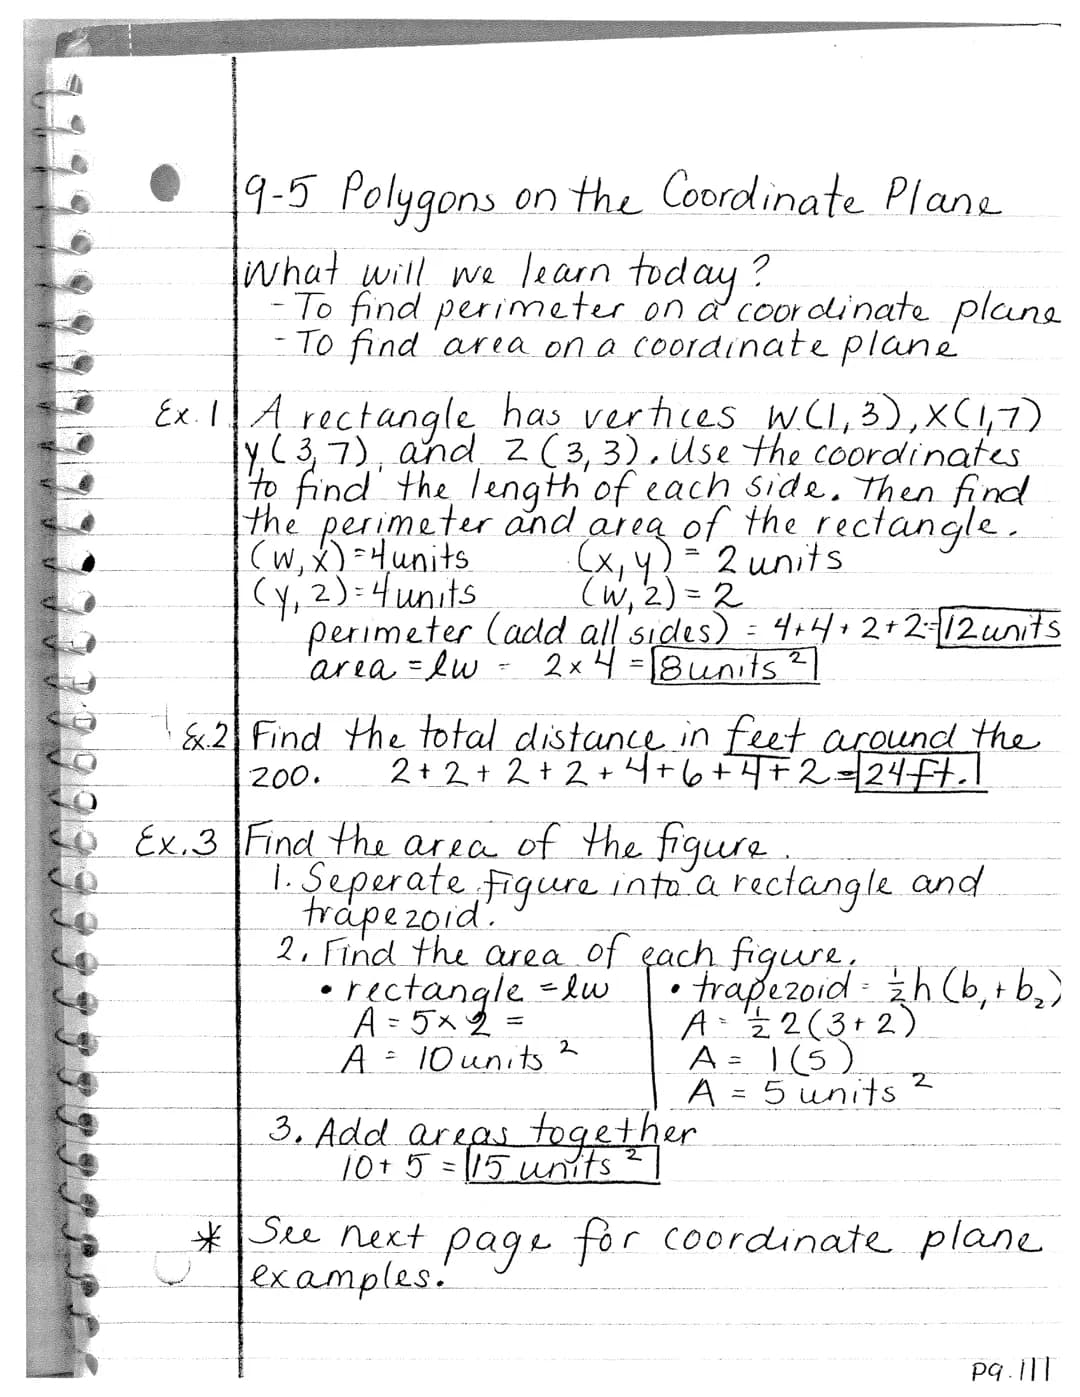 9-5 Polygons on the Coordinate Plane
What will we learn today?
- To find perimeter on a coordinate plane
- To find area on a coordinate plane
Ex. 1 A rectangle has vertices W(1,3), X(1,7)
y(3,7), and Z(3,3). Use the coordinates
to find the length of each side. Then find
the perimeter and area of the rectangle.
(W,X)=4units (x,y) = 2 units
(y,z)=4units (W,z) = 2
perimeter (add all sides) = 4+4+2+2=12units
area = lw = 2x4 = 8units²
Ex.2 Find the total distance in feet around the
zoo. 2+2+2+2+4+6+4+2=24ft.
Ex.3 Find the area of the figure.
1. Seperate figure into a rectangle and
trapezoid.
2. Find the area of each figure.
• rectangle = lw • trapezoid = ½h(b₁+b₂)
A = 5x2 = A = ½2(3+2)
A = 10units² A = 1(5)
A = 5units²
3. Add areas together
10+5 = 15 units²
* See next page for coordinate plane
examples.
pg. 111